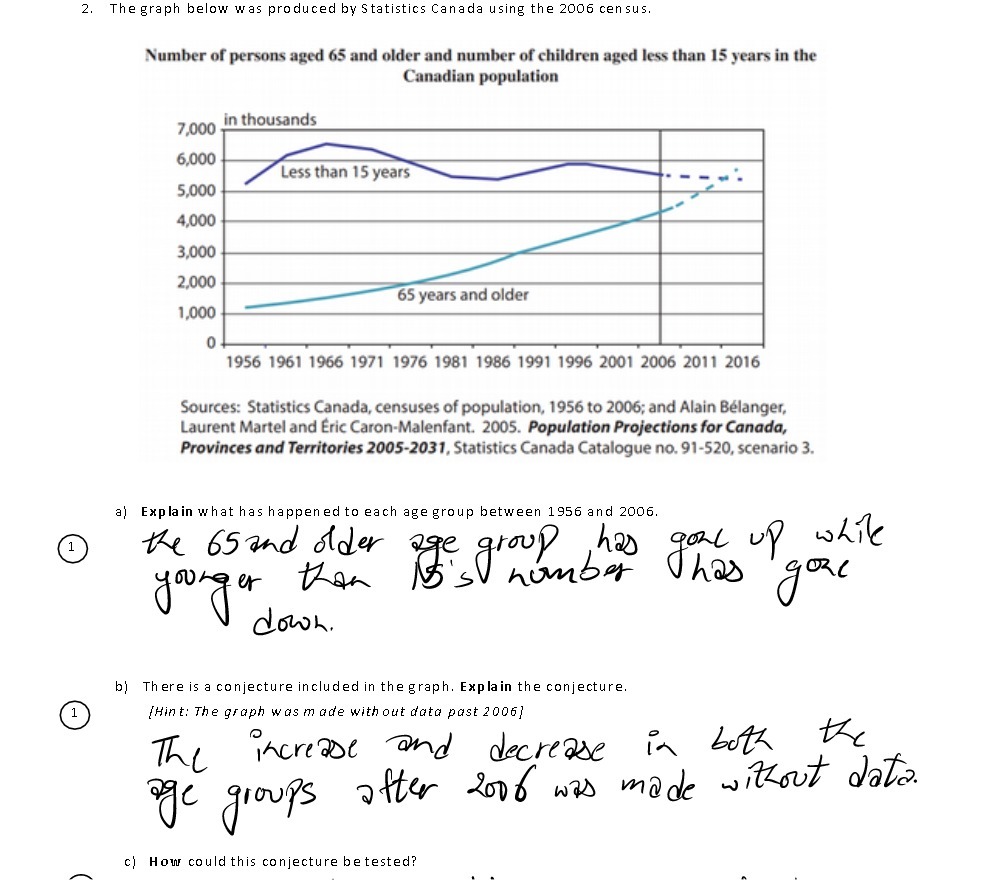 2. The graph below was produced by Statistics Canada using the 2006 census.
Number of persons aged 65 and older and number of children aged less than 15 years in the
Canadian population
in thousands
7,000
6,000
Less than 15 years
5,000
4,000
3,000
2,000
65 years and older
1,000
0
1956 1961 1966 1971 1976 1981 1986 1991 1996 2001 2006 2011 2016
Sources: Statistics Canada, censuses of population, 1956 to 2006; and Alain Bélanger,
Laurent Martel and Éric Caron-Malenfant. 2005. Population Projections for Canada,
Provinces and Territories 2005-2031, Statistics Canada Catalogue no. 91-520, scenario 3.
a) Explain what has happened to each age group between 1956 and 2006.
1
the 65 and older age group has gone up while
younger than 15's number has gone
down.
b) There is a conjecture included in the graph. Explain the conjecture.
1
[Hint: The graph was made without data past 2006]
The increase and decrease in both the
age groups after 2006 was made without data.
c) How could this conjecture be tested?